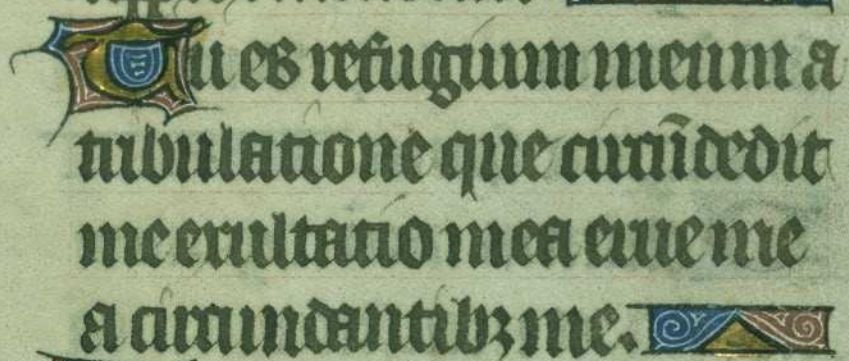 Tu es refugium meum a
tribulatione que circūdedit
me exultatio mea erue me
a circumdantibꝫ me.